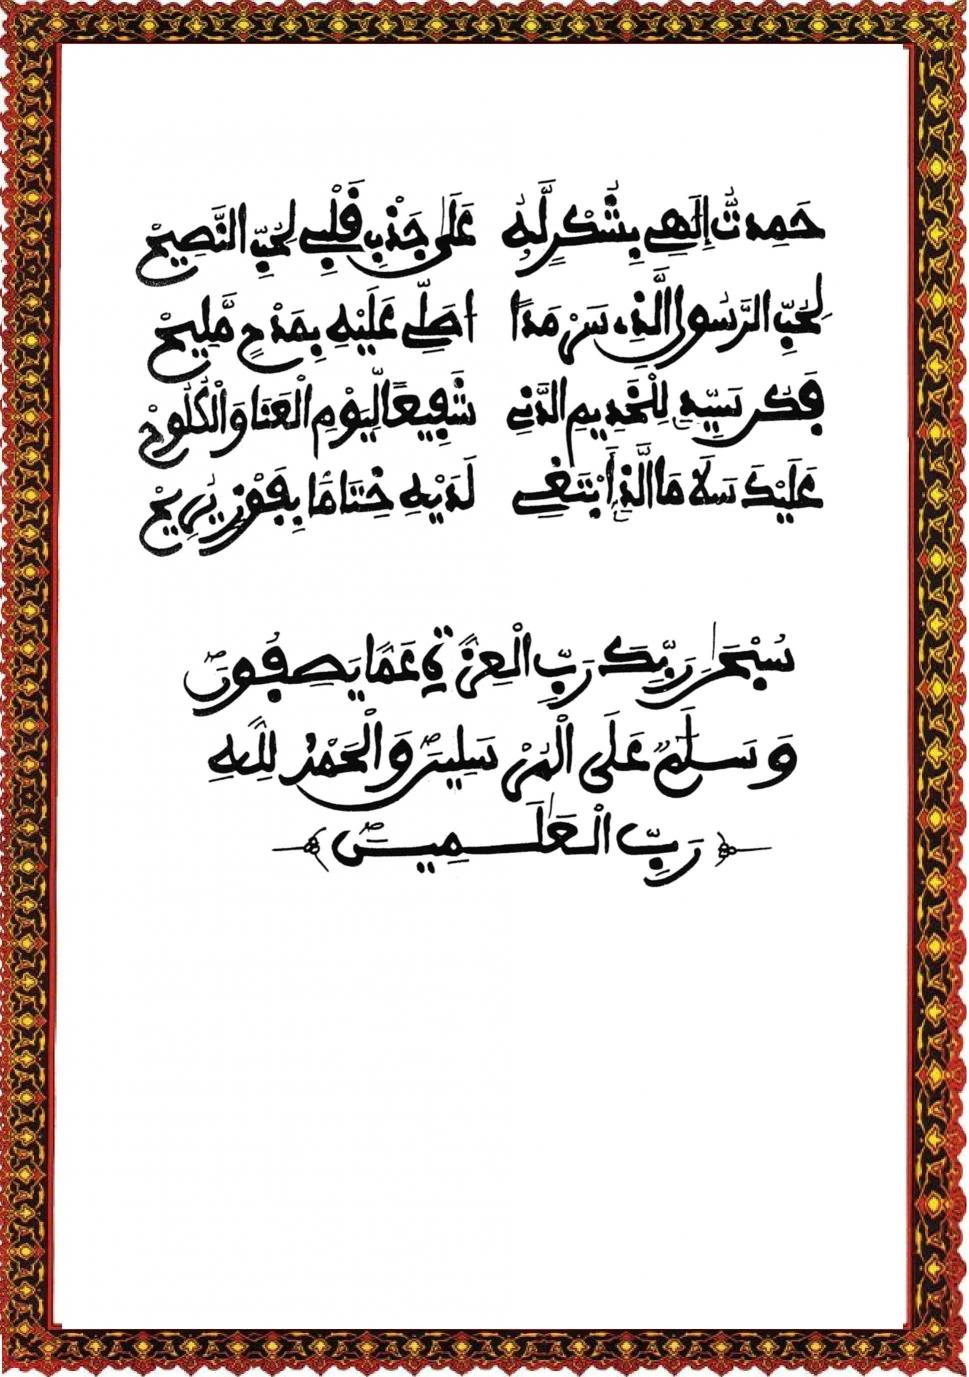 حَمِدتُّ إِلَهِي بِشُكْرٍ لَّهُ عَلَى جَذْبِ قَلْبِي لِحُبِّ النَّصِيحْ
لِحُبِّ الرَّسُولِ الَّذِي سَرْمَدًا اصَلِّي عَلَيْهِ بِمَدْحٍ مَّلِيحْ
فَكُن سَيِّدِي لِلْخَدِيمِ الدَّنِي شَفِيعًا لِّيَوْمِ الْعَنَا وَالْكُلُوحْ
عَلَيْكَ سَلَامَا الَّذِ أَبْتَغِي لَدَيْهِ خِتَامًا بِفَوْزٍ يُرِيحْ
سُبْحَنَ رَبِّكَ رَبِّ الْعِزَّةِ عَمَّا يَصِفُونَ
وَسَلَمٌ عَلَى الْمُرْسَلِينَ وَالْحَمْدُ لِلَّهِ
رَبِّ الْعَلَمِينَ